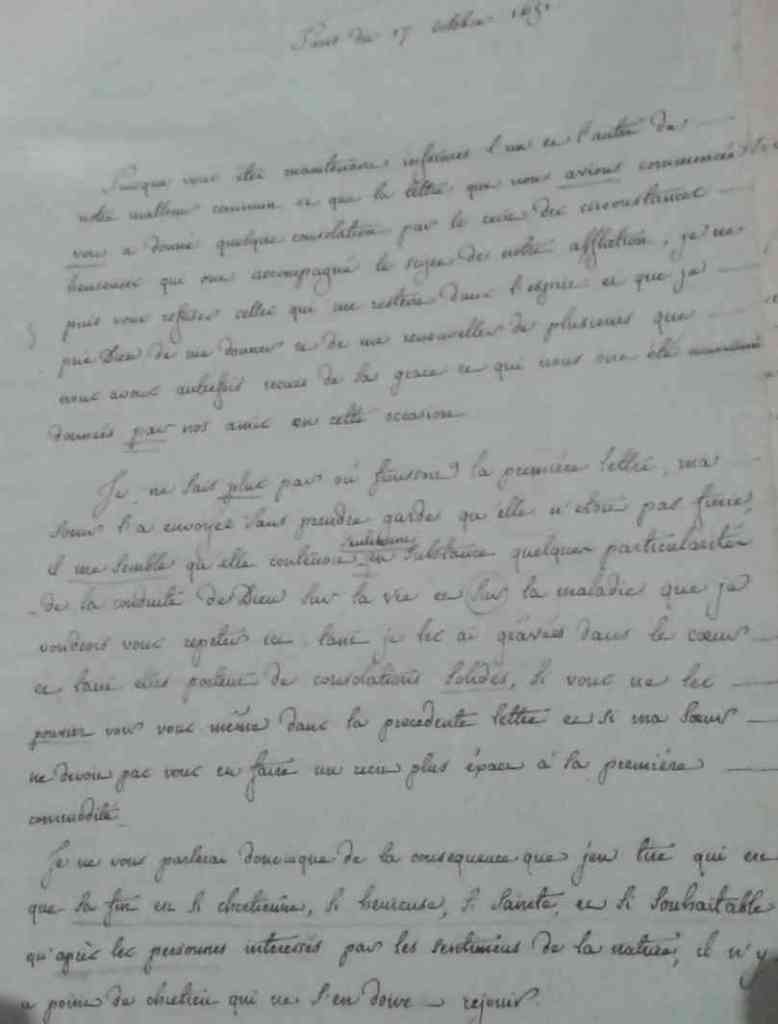 Paris du 17 octobre 1651
Puisque vous etes maintenant informés l'un et l'autre de
notre malheur commun et que la lettre que nous avions commencée
vous a donné quelque consolation par le recit des circonstances
heureuses qui ont accompagné le sujet de notre affliction, je ne
puis vous refuser celles qui me restent dans l'esprit et que je
prie Dieu de me donner et de me renouveller de plusieurs que
nous avons autrefois recues de sa grace et qui nous ont été
données par nos amis en cette occasion
Je ne sais plus par où finissoit la première lettre, ma
soeur l'a envoyée sans prendre garde qu'elle n'etoit pas finie,
il me semble qu'elle contenoit en substance quelques particularités
de la conduite de Dieu sur la vie et sur la maladie que je
voudrois vous repeter ici tant je les ai gravées dans le coeur
et tant elles portent de consolations solides, si vous ne les
pouviez voir vous même dans la precedente lettre et si ma soeur
ne devoit pas vous en faire un recit plus exact à la première
commodité.
Je ne vous parlerai donc que de la consequence que j'en tire qui est
que sa fin est si chretienne, si heureuse, si sainte, et si souhaitable
qu'après les personnes interessés par les sentimens de la nature, il n'y
a point de chretien qui ne s'en doive rejouir.